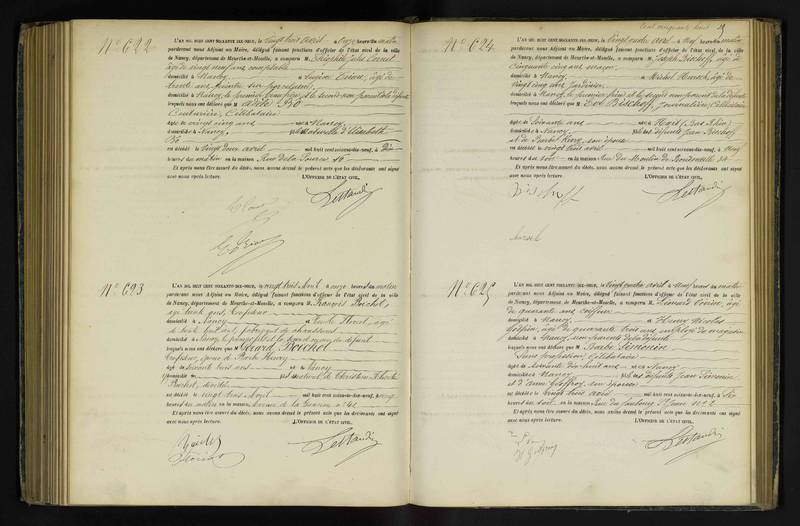 N° 622
L'AN MIL HUIT CENT SOIXANTE-DIX-NEUF, le vingt trois avril à onze heures du matin
pardevant nous Adjoint au Maire, délégué faisant fonctions d'officier de l'état civil de la ville
de Nancy, département de Meurthe-et-Moselle, a comparu M. Jules
âgé de vingt neuf ans comptable
domicilié à Nancy Eugène âgé de
trente ans peintre sur porcelaine
domicilié à Nancy, le premier le second non parent de la défunte
lesquels nous ont déclaré que M Adèle Bô
Couturière, Célibataire
âgée de vingt cinq ans née à Nancy
domiciliée à Nancy, fille naturelle d'Elisabeth
Bô
est décédée le vingt deux avril mil huit cent soixante-dix-neuf, à dix
heures du matin en la maison Rue de la Source 16
Et après nous être assuré du décès, nous avons dressé le présent acte que les déclarants ont signé
avec nous après lecture. L'OFFICIER DE L'ÉTAT CIVIL,
N° 623
L'AN MIL HUIT CENT SOIXANTE-DIX-NEUF, le vingt trois Avril à onze heures du matin
pardevant nous Adjoint au Maire, délégué faisant fonctions d'officier de l'état civil de la ville
de Nancy, département de Meurthe-et-Moselle, a comparu M. François Boichot,
âgé trente ans,
domicilié à Nancy Emile âgé
de trente huit ans fabricant de chaussures
domicilié à Nancy le premier fils et le second du défunt
lesquels nous ont déclaré que M Boichot
époux de
âgé de soixante trois ans né à Nancy
domicilié fils de Christien
Boichot, décédés
est décédé le vingt trois Avril mil huit cent soixante-dix-neuf, à cinq
heures du matin en la maison avenue de la Garenne n° 41
Et après nous être assuré du décès, nous avons dressé le présent acte que les déclarants ont signé
avec nous après lecture. L'OFFICIER DE L'ÉTAT CIVIL,
Cent cinquante huit
N° 624
L'AN MIL HUIT CENT SOIXANTE-DIX-NEUF, le vingt quatre avril à neuf heures du matin
pardevant nous Adjoint au Maire, délégué faisant fonctions d'officier de l'état civil de la ville
de Nancy, département de Meurthe-et-Moselle, a comparu M. Joseph Bischoff, âgé de
Cinquante cinq ans maçon
domicilié à Nancy Michel Hirsch, âgé de
vingt cinq ans jardinier
domicilié à Nancy, le premier frère et le second non parent de la défunte
lesquels nous ont déclaré que M Eve Bischoff, journalière, Célibataire
âgée de Soixante ans née à Hart (Bas Rhin)
domiciliée à Nancy, fille des défunts Jean Bischoff
et de Barbe son épouse
est décédée le vingt trois avril mil huit cent soixante-dix-neuf, à neuf
heures du soir en la maison Rue du Moulin de Boudonville 34
Et après nous être assuré du décès, nous avons dressé le présent acte que les déclarants ont signé
avec nous après lecture. L'OFFICIER DE L'ÉTAT CIVIL,
Bischoff
N° 625
L'AN MIL HUIT CENT SOIXANTE-DIX-NEUF, le vingt quatre avril à neuf heures du matin
pardevant nous Adjoint au Maire, délégué faisant fonctions d'officier de l'état civil de la ville
de Nancy, département de Meurthe-et-Moselle, a comparu M. Léonard âgé
de quarante ans coiffeur
domicilié à Nancy Henry Nicolas
âgé de quarante trois ans employé de magasin
domicilié à Nancy, non parents de la défunte
lesquels nous ont déclaré que M Barbe Simonin
Sans profession, Célibataire
âgée de soixante dix huit ans née à Nancy
domiciliée à Nancy fille des défunts Jean Simonin
et d'Anne Godfroy, son épouse
est décédée le vingt trois avril mil huit cent soixante-dix-neuf, à six
heures du soir en la maison Rue du faubourg St Jean n° 2
Et après nous être assuré du décès, nous avons dressé le présent acte que les déclarants ont signé
avec nous après lecture. L'OFFICIER DE L'ÉTAT CIVIL,